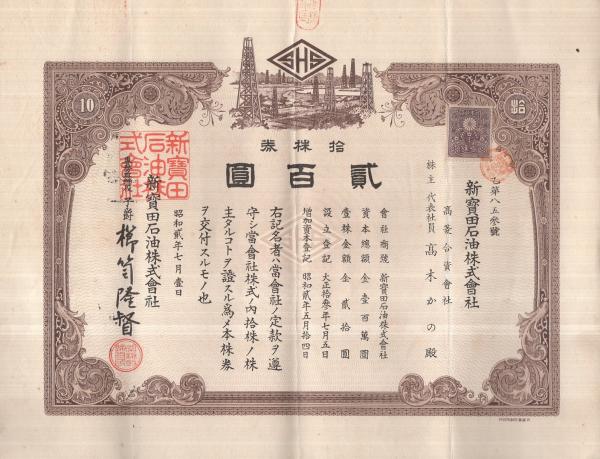 SHS
10
拾
拾株券
貳百圓
乙第八五參號
新寶田石油株式會社
高菱合資會社
株主 代表社員 髙木かの殿
會社商號 新寶田石油株式會社
資本總額 金壹百萬圓
壹株金額 金貳拾圓
設立登記 大正拾參年七月五日
增加資本登記 昭和貳年五月拾四日
右記名者ハ當會社ノ定款ヲ遵
守シ當會社株式ノ內拾株ノ株
主タルコトヲ證スル爲メ本株券
ヲ交付スルモノ也
昭和貳年七月壹日
新寶田石油株式會社
子爵 櫛笥隆督
新寶田石油株式會社